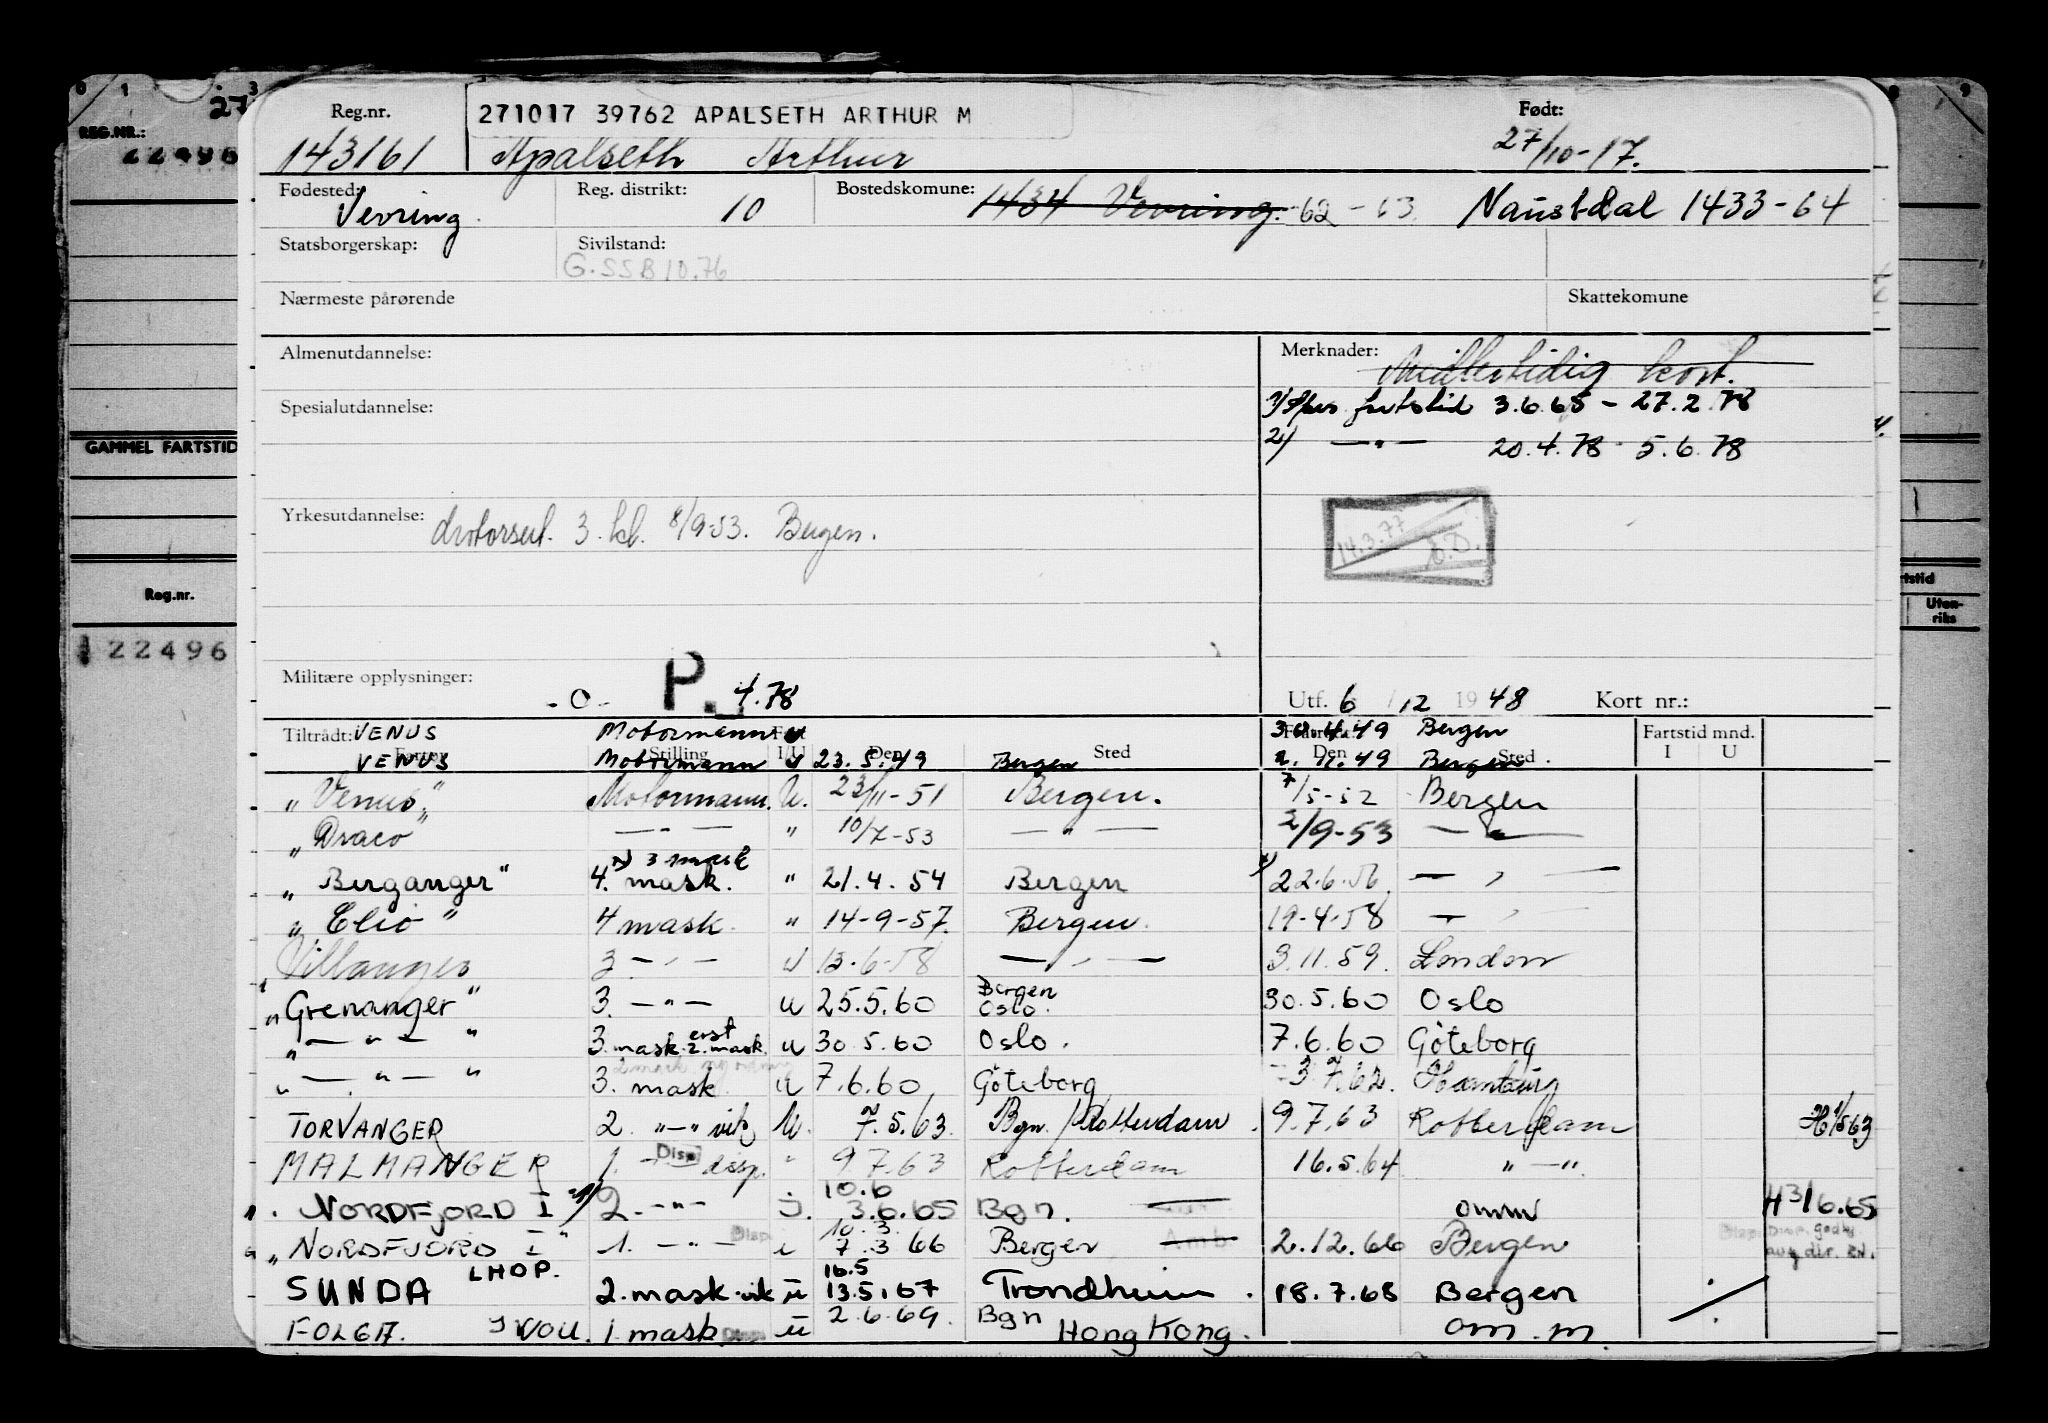 0 1 3
27
REG.NR.:
22496
GAMMEL FARTSTID
Reg.nr.
122496
Reg.nr. 271017 39762 APALSETH ARTHUR M Født:
143161 Apalseth Arthur 27/10-17.
Fødested: Reg. distrikt: Bostedskomune:
Vevring. 10 1434 Vevring. 62-63 Naustdal 1433-64
Statsborgerskap: Sivilstand:
G.SSB10.76
Nærmeste pårørende Skattekomune
Almenutdannelse: Merknader: Midlertidig kort.
Spesialutdannelse: 1) fartstid 3.6.65 - 27.2.78
2) —"— 20.4.78 - 5.6.78
Yrkesutdannelse: 3. kl. 8/9-53. Bergen.
14.3.77
Militære opplysninger: -0- P. 4.78 Utf. 6/12 1948 Kort nr.:
Tiltrådt: VENUS Motormann u 49 Bergen Fartstid mnd.
VENUS Stilling Motormann I/U u Den 23.5.49 Bergen Sted Den 49 Bergen Sted I U
"Venus" Motormann. U. 23/11-51 Bergen. 7/5-52 Bergen
"Draco" —"— " 10/7-53 —"— 2/9-53 —"—
3 mask
"Berganger" 4. mask. " 21.4.54 Bergen 22.6.56. —"—
"Clio" 4 mask. " 14-9-57. Bergen. 19-4-58 —"—
"Villanger 3 —"— u 13.6.58 —"— 3.11.59. London
"Grenanger" 3. —"— u 25.5.60 Bergen Oslo. 30.5.60 Oslo
"—"—" 3. mask. erst 2. mask. u 30.5.60 Oslo. 7.6.60 Göteborg
"—"—" 3. mask u 7.6.60 Göteborg 3.7.62. Hamburg
TORVANGER 2. "—" vik U. 7.5.63. Bgn./Rotterdam. 9.7.63 Rotterdam H 1/5 63
MALMANGER 1. —"— Disp disp. " 9.7.63 Rotterdam 16.5.64 "—".
10.6
" NORDFJORD I 1) 2. —"— 3.6.65 Bgn. omm H 3/6.65
10.3
"NORDFJORD I" 1. —"— Disp u 7.3.66 Bergen Amb 2.12.66 Bergen
LHOP. 16.5
SUNDA 2. mask. vik u 13.5.67 Trondheim. 18.7.68 Bergen
FOLGA. 1 mask. Disp u 2.6.69. Bgn Hong Kong. om.m.
tstid
Uten-
riks